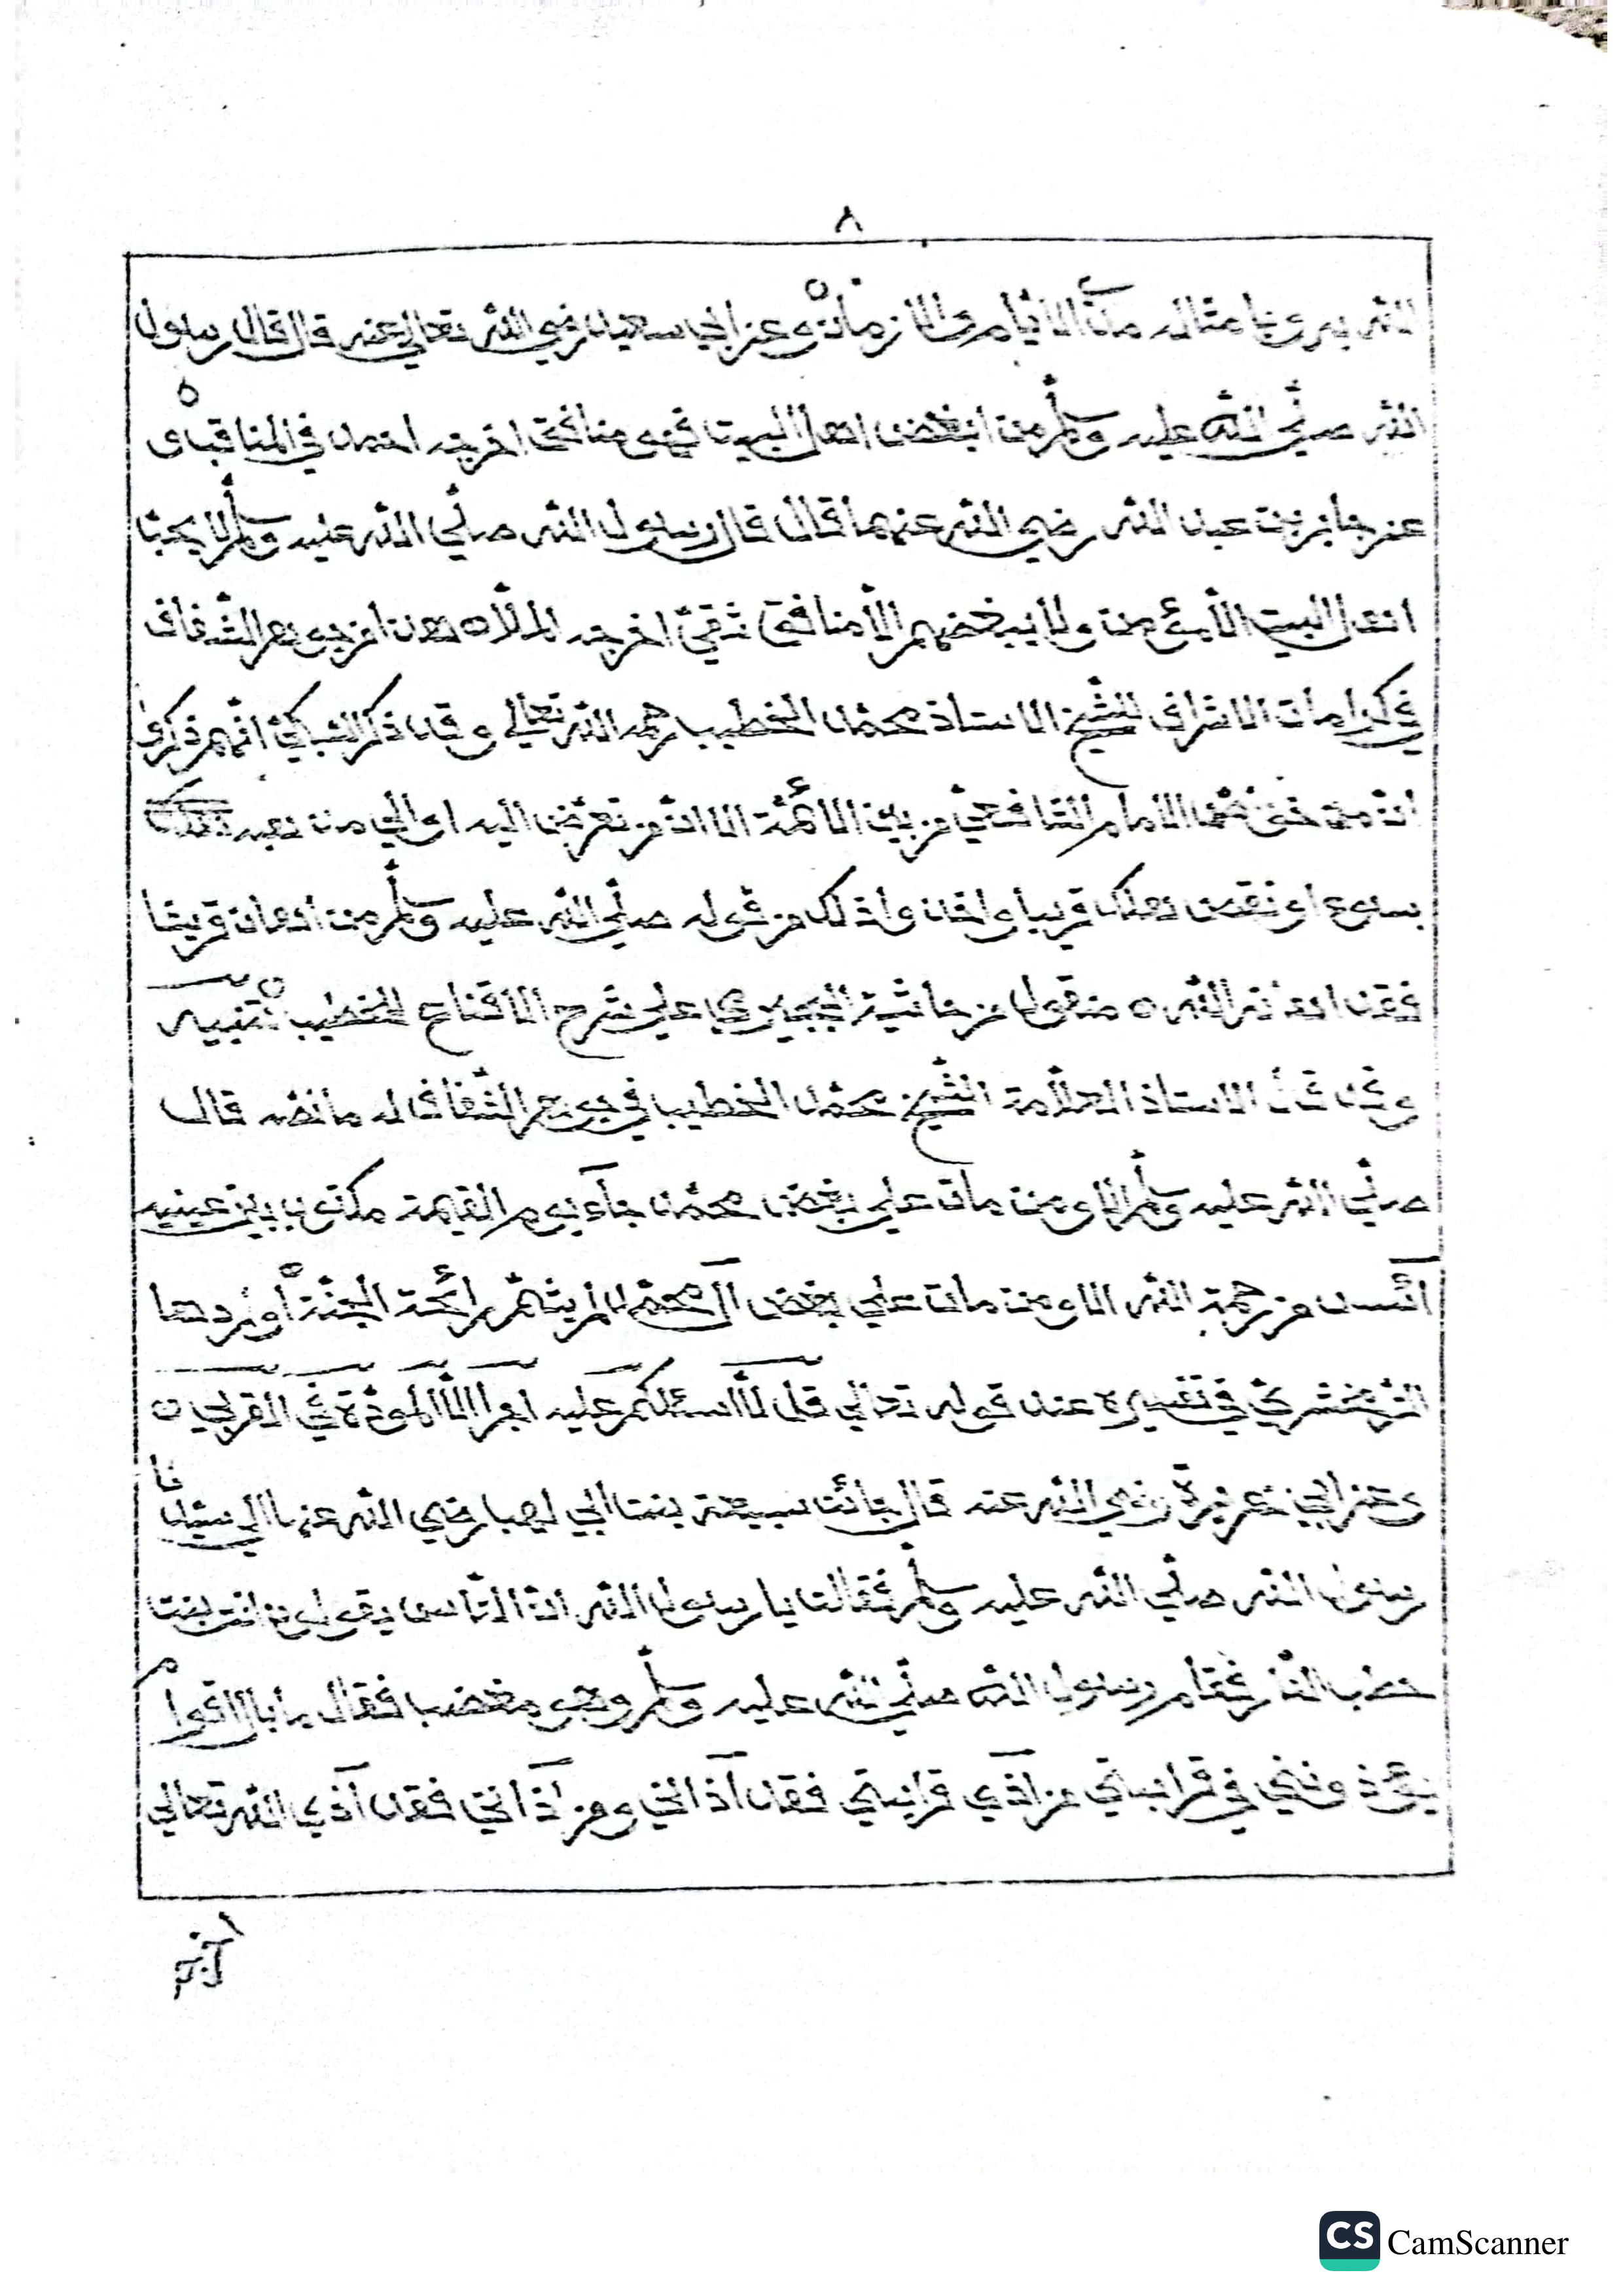 ٨
الله بدوام الأيام والأزمان وعن ابي سعيد رضي الله تعالى عنه قال قال رسول
الله صلّي الله عليه وسلّم من ابغض اهل البيت فهو منافق اخرجه احمد في المناقب و
عن جابر بن عبد الله رضي الله عنهما قال قال رسول الله صلّي الله عليه وسلّم لا يحبّنا
اهل البيت الّا مؤمن ولا يبغضهم الّا منافق شقيّ اخرجه الملّا من
في كرامات الاشراف للشّيخ الاستاذ محمّد الخطيب رحمه الله تعالي وقد ذكر السّبكيّ انّهم ذكروا
انّ من الامام الشّافعيّ من بين الأئمّة الا انّ من تعرّض اليه او الي مذهبه
بسوء او نقص هلك قريبا واخذوا ذلك من قوله صلّي الله عليه وسلّم من اهان قريشا
فقد اهانه الله منقول من حاشية البجيرمي علي شرح الاقناع للخطيب تنبيه
وقد قال الاستاذ العلّامة الشّيخ محمّد الخطيب في له ما نصّه قال
صلّي الله عليه وسلّم الا ومن مات علي بغض محمّد جآء يوم القيمة مكتوب بين عينيه
آئس من رحمة الله الا ومن مات علي بغض آل محمّد لم يشمّ رائحة الجنّة اوردها
الزّمخشريّ في تفسيره عند قوله تعالي قل لّآ اسئلكم عليه اجرا الّا المودّة في القربي
وعن ابي هريرة رضي الله عنه قال جائت سبيعة بنت ابي لهب رضي الله عنها الي سيّدنا
رسول الله صلّي الله عليه وسلّم فقالت يا رسول الله انّ النّاس يقولون انت بنت
حطب النّار فقام رسول الله صلّي الله عليه وسلّم وهو مغضب فقال ما بال اقوام
يؤذونني في قرابتي من آذي قرابتي فقد آذاني ومن آذاني فقد آذي الله تعالي
CS CamScanner